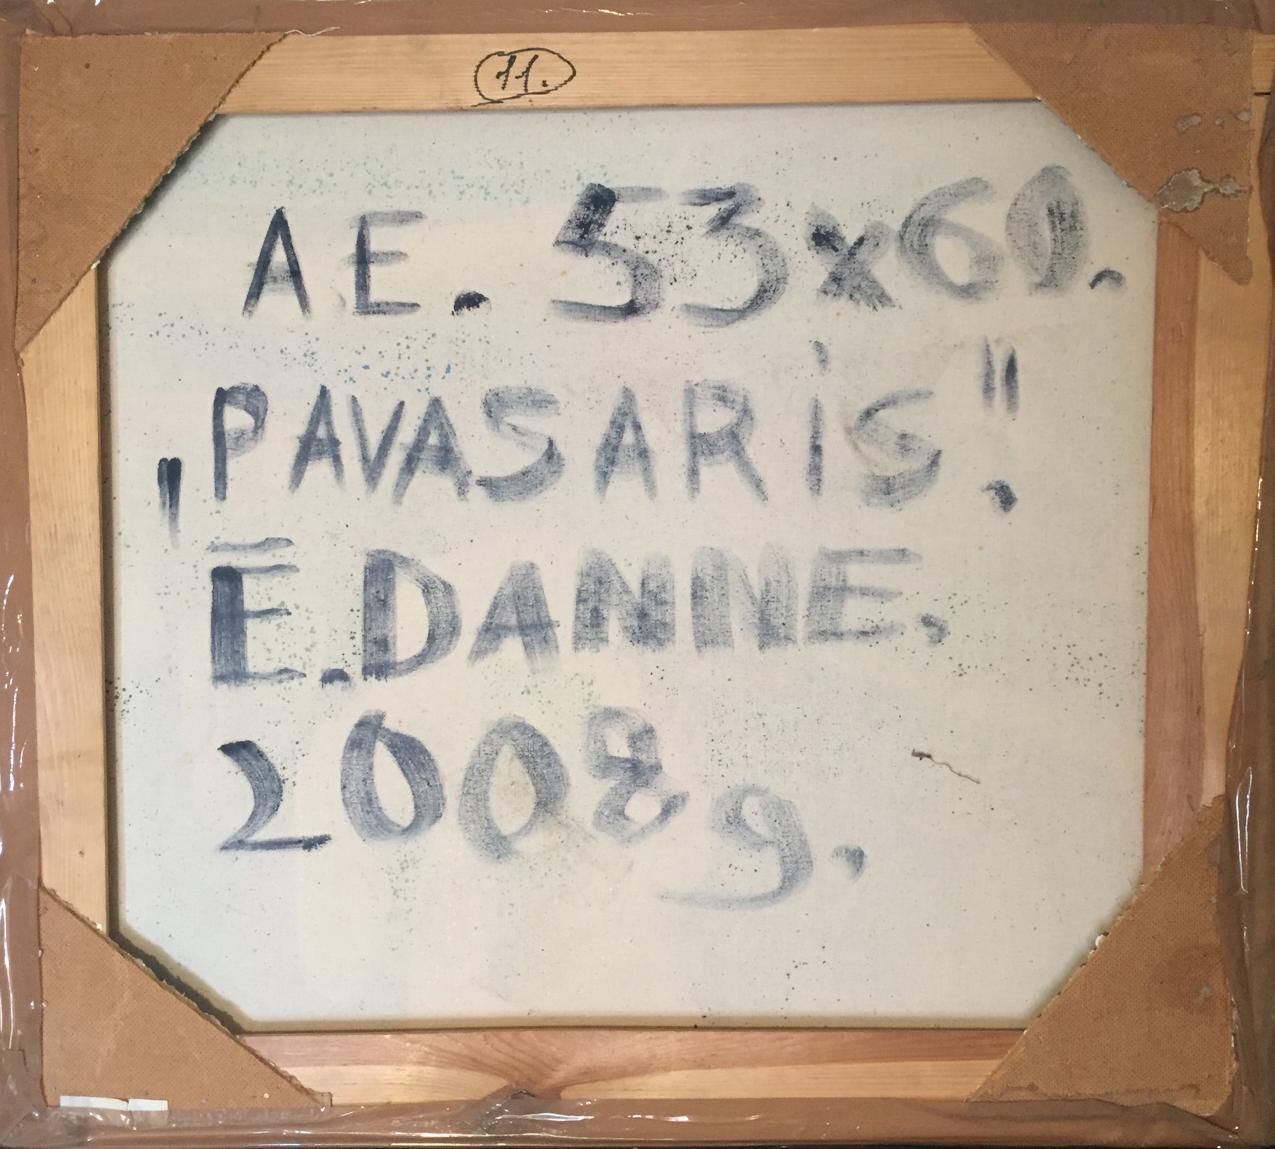 11.
AE. 53x60.
„PAVASARiS".
Ē.DANNE.
2008g.